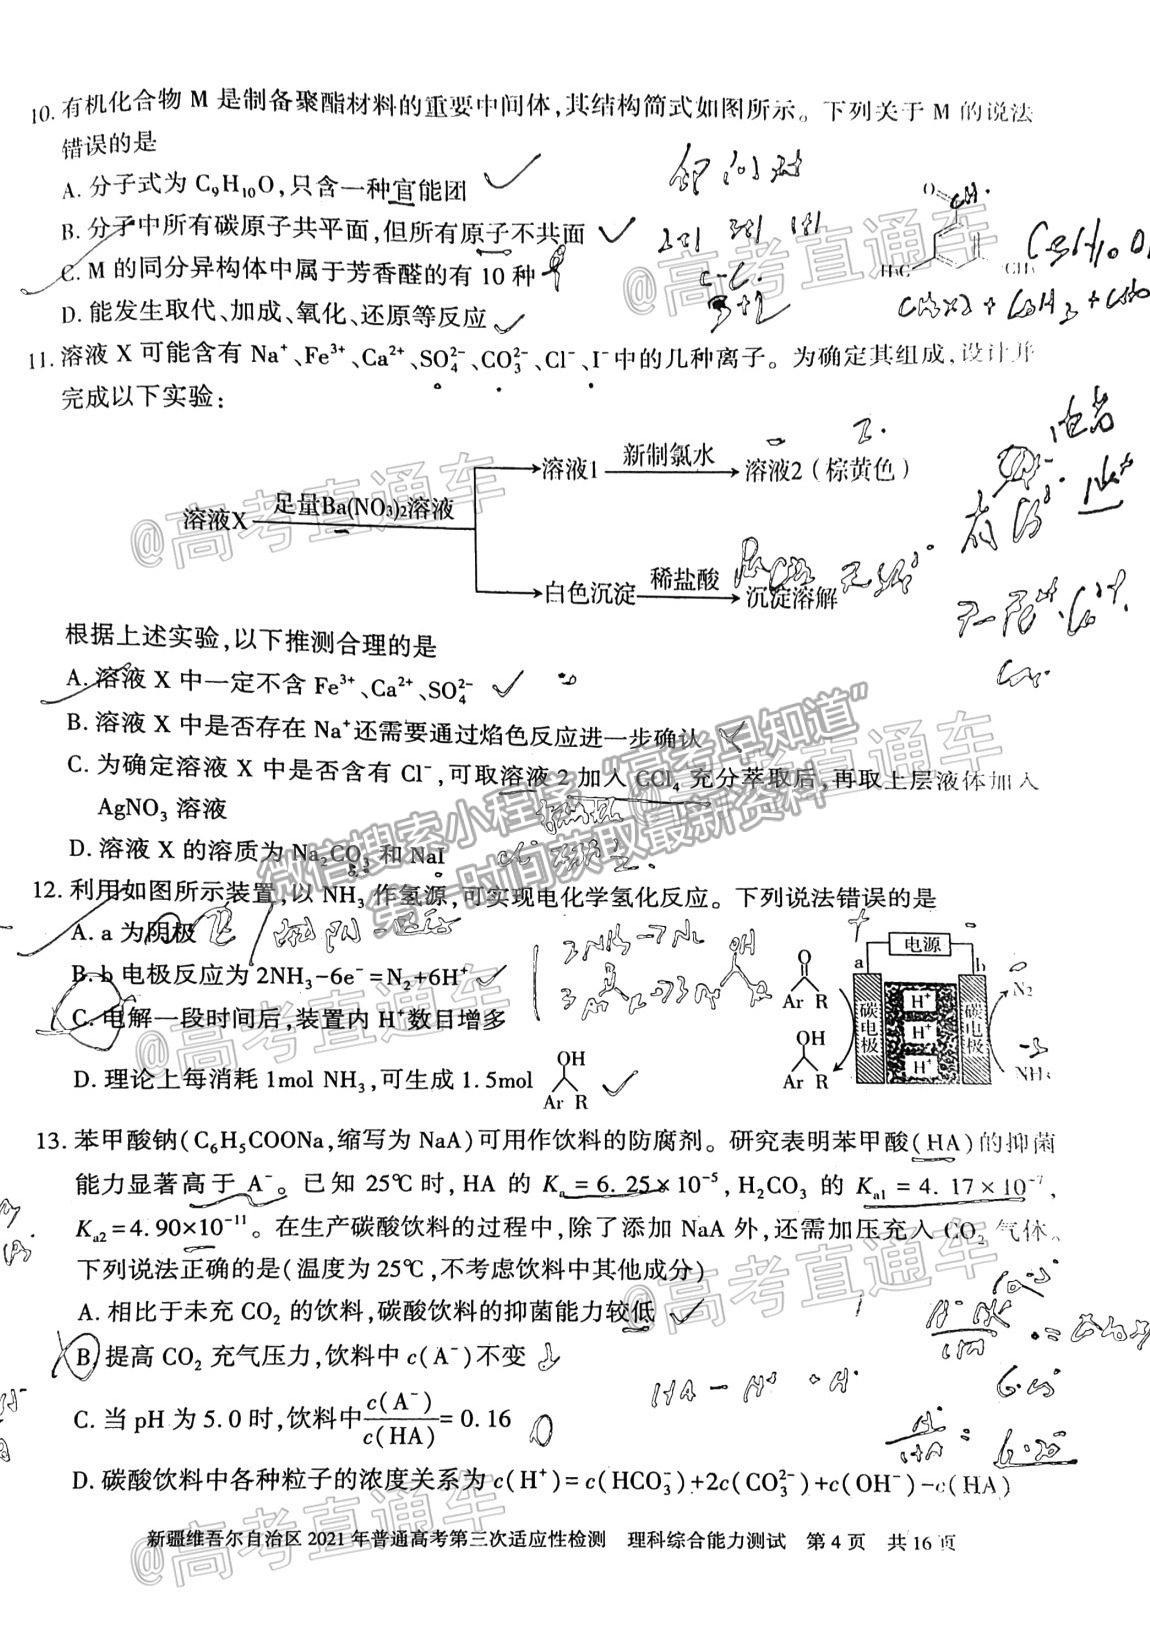 10. 有机化合物 M 是制备聚酯材料的重要中间体,其结构简式如图所示。下列关于 M 的说法
错误的是
A. 分子式为 C₉H₁₀O,只含一种官能团
B. 分子中所有碳原子共平面,但所有原子不共面
C. M 的同分异构体中属于芳香醛的有 10 种
D. 能发生取代、加成、氧化、还原等反应
O
H₃C
CH₃
11. 溶液 X 可能含有 Na⁺、Fe³⁺、Ca²⁺、SO₄²⁻、CO₃²⁻、Cl⁻、I⁻中的几种离子。为确定其组成,设计并
完成以下实验:
溶液X 足量Ba(NO₃)₂溶液
溶液1 新制氯水 溶液2(棕黄色)
白色沉淀 稀盐酸 沉淀溶解
根据上述实验,以下推测合理的是
A. 溶液 X 中一定不含 Fe³⁺、Ca²⁺、SO₄²⁻
B. 溶液 X 中是否存在 Na⁺还需要通过焰色反应进一步确认
C. 为确定溶液 X 中是否含有 Cl⁻,可取溶液 2 加入 CCl₄ 充分萃取后,再取上层液体加入
AgNO₃ 溶液
D. 溶液 X 的溶质为 Na₂CO₃ 和 NaI
12. 利用如图所示装置,以 NH₃ 作氢源,可实现电化学氢化反应。下列说法错误的是
A. a 为阴极
B. b 电极反应为 2NH₃-6e⁻=N₂+6H⁺
C. 电解一段时间后,装置内 H⁺数目增多
D. 理论上每消耗 1mol NH₃,可生成 1.5mol
OH
Ar R
电源
a b
O
Ar R
OH
Ar R
碳电极
H⁺
H⁺
H⁺
碳电极
N₂
NH₃
13. 苯甲酸钠(C₆H₅COONa,缩写为 NaA)可用作饮料的防腐剂。研究表明苯甲酸(HA)的抑菌
能力显著高于 A⁻。已知 25℃时,HA 的 Kₐ=6.25×10⁻⁵,H₂CO₃ 的 Kₐ₁=4.17×10⁻⁷,
Kₐ₂=4.90×10⁻¹¹。在生产碳酸饮料的过程中,除了添加 NaA 外,还需加压充入 CO₂ 气体。
下列说法正确的是(温度为 25℃,不考虑饮料中其他成分)
A. 相比于未充 CO₂ 的饮料,碳酸饮料的抑菌能力较低
B. 提高 CO₂ 充气压力,饮料中 c(A⁻)不变
C. 当 pH 为 5.0 时,饮料中c(A⁻)/c(HA)=0.16
D. 碳酸饮料中各种粒子的浓度关系为 c(H⁺)=c(HCO₃⁻)+2c(CO₃²⁻)+c(OH⁻)-c(HA)
新疆维吾尔自治区 2021 年普通高考第三次适应性检测 理科综合能力测试 第 4 页 共 16 页
@高考直通车
@高考直通车
@高考直通车
@高考直通车
@高考直通车
@高考直通车
@高考直通车
微信搜索小程序“高考早知道”
第一时间获取最新资料